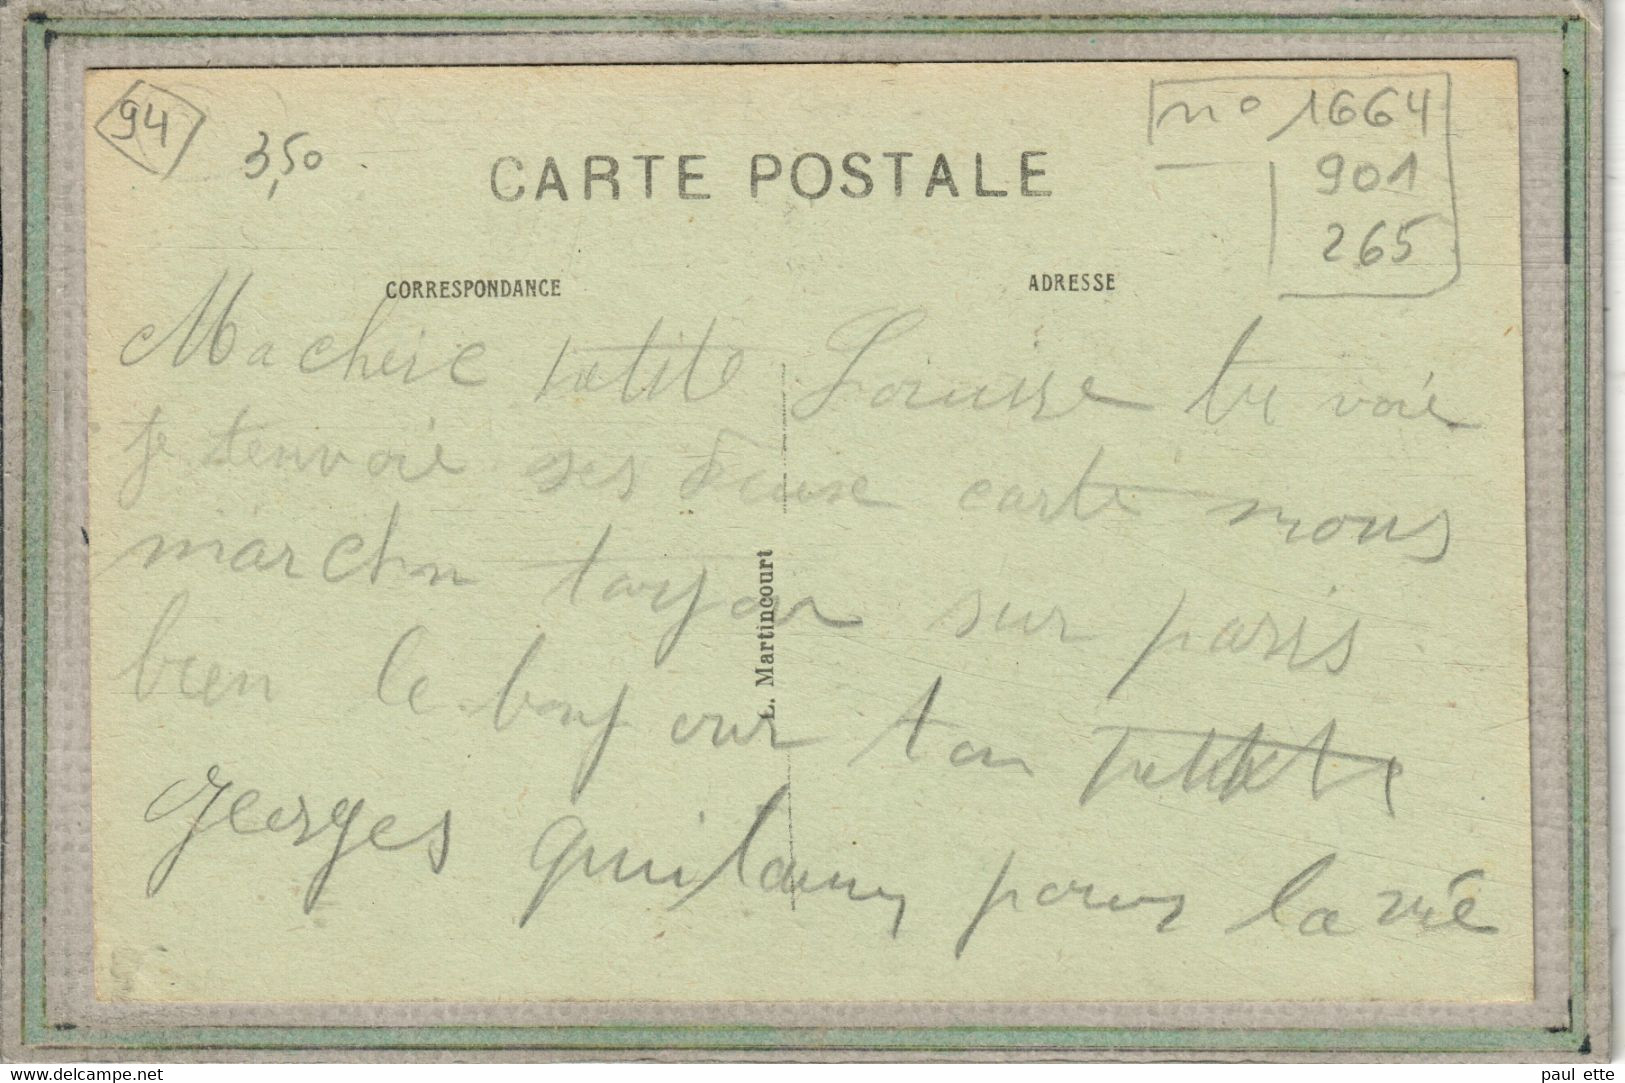 94
3,50
CARTE POSTALE
no 1664
901
265
CORRESPONDANCE
ADRESSE
Ma cherie petite Louisse tu voie
je tenvoie ses deuse carte nous
marchn torjor sur paris
bien le bonjour ton
georges pour la vie
L. Martincourt
www.delcampe.net
paul ette